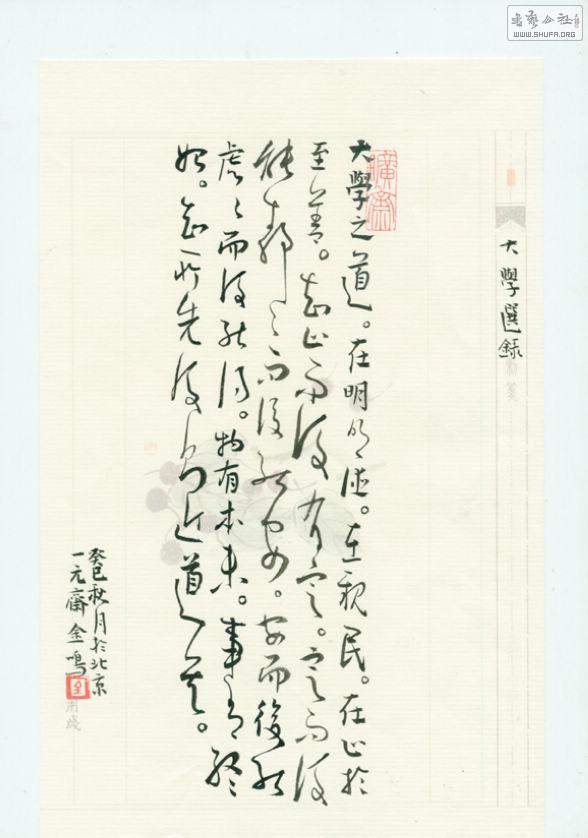 書藝公社
WWW.SHUFA.ORG
大學選錄
大學之道。在明明德。在親民。在止於
至善。知止而後有定。定而後
能靜〻而後能安。安而後能
慮〻而後能得。物有本末。事有終
始。知所先後則近道矣。
癸巳秋月於北京
一元齋金鳴
用箋